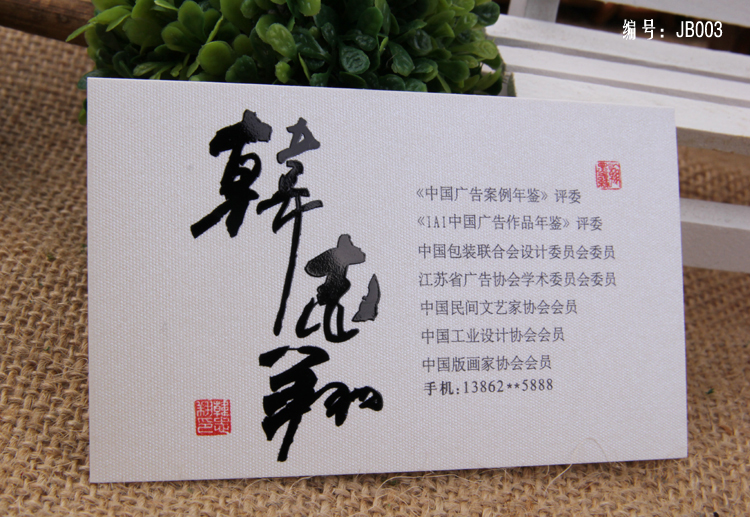 编号：JB003
韩志翔
《中国广告案例年鉴》评委
《1A1中国广告作品年鉴》评委
中国包装联合会设计委员会委员
江苏省广告协会学术委员会委员
中国民间文艺家协会会员
中国工业设计协会会员
中国版画家协会会员
手机:13862**5888